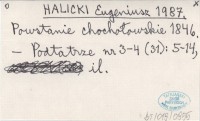 HALICKI Eugeniusz 1987.
Powstanie chochołowskie 1846.
– Podtatrze nr 3-4 (31): 5-14,
il.